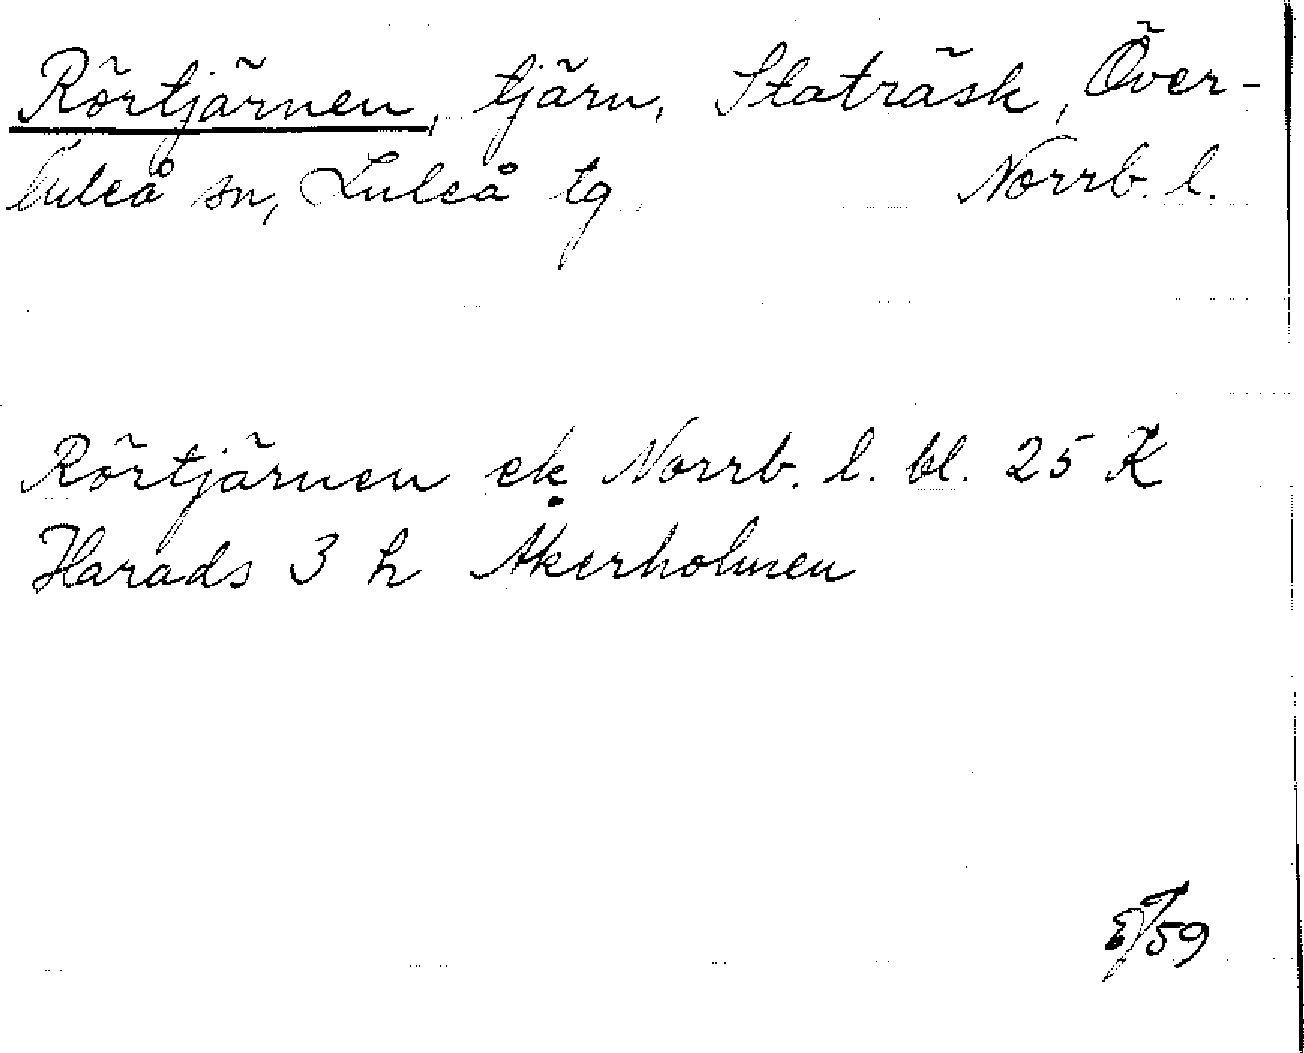 Rörtjärnen, tjärn, Staträsk, Över-
luleå sn, Luleå tg Norrb. l.
Rörtjärnen ek Norrb. l. bl. 25 K
Harads 3 h Åkerholmen
/59